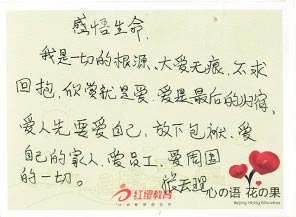 感悟生命.
我是一切的根源、大爱无痕、不求
回抱,欣赏就是爱、爱是最后的归宿、
爱人先要爱自己,放下包袱、爱
自己的家人,爱员工、爱周围
的一切。
张天翌
红缨教育
心の语 花の果
Beijing HoIng Education